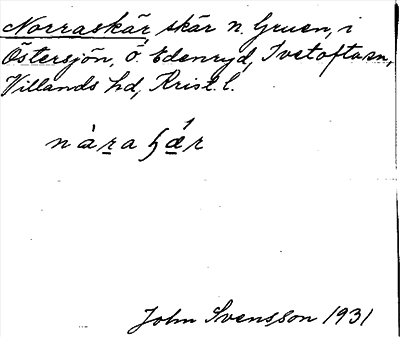 Norraskär skär n. Gruen, i
Östersjön, ö. Edenryd, Ivetofta sn,
Villands hd, Krist. l.
John Svensson 1931